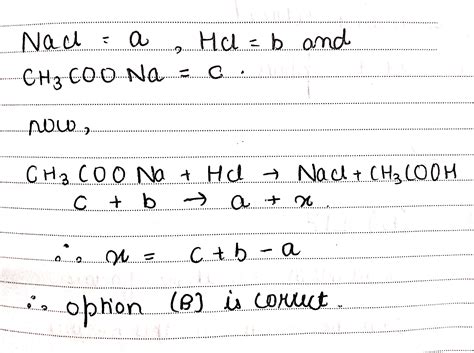 Nacl = a , Hcl = b and
CH3COO Na = c .
now,
CH3COO Na + Hcl → Nacl + CH3COOH
c + b → a + x
∴ x = c + b - a
∴ option (B) is correct.